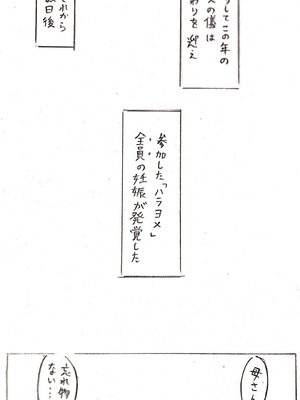 うしてこの年の
の儀は
わりを迎え
れから
日後
参加した「ハラヨメ」
全員の妊娠が発覚した
母さん
忘れ物
ない…